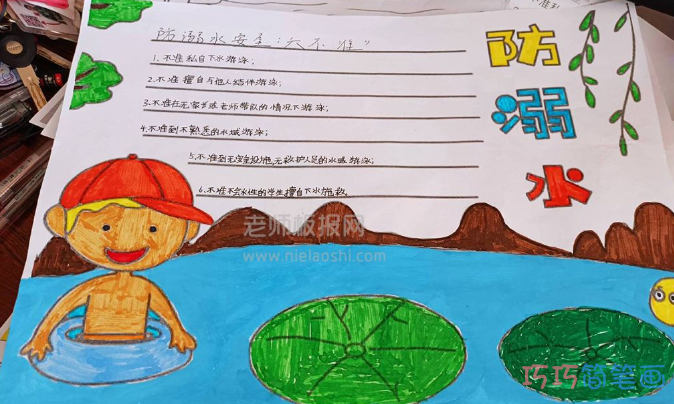 防溺水安全:"六不准"
1.不准私自下水游泳;
2.不准擅自与他人结伴游泳;
3.不准在无家长或老师带队的情况下游泳;
4.不准到不熟悉的水域游泳;
5.不准到无安全设施,无救护人员的水域游泳;
6.不准不会水性的学生擅自下水施救。
防
溺
水
老师板报网
www.nlelaoshi.com
巧巧简笔画